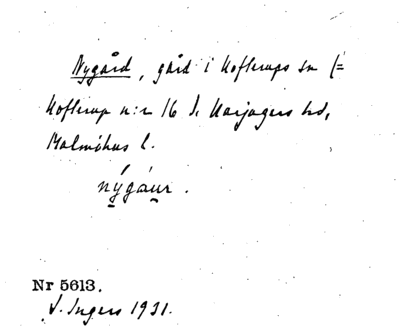 Nygård, gård i Hofterups sn (=
Hofterup n:r 16 i Harjagers hd,
Malmöhus l.
nýgáur.
Nr 5613.
I. Ingers 1931.